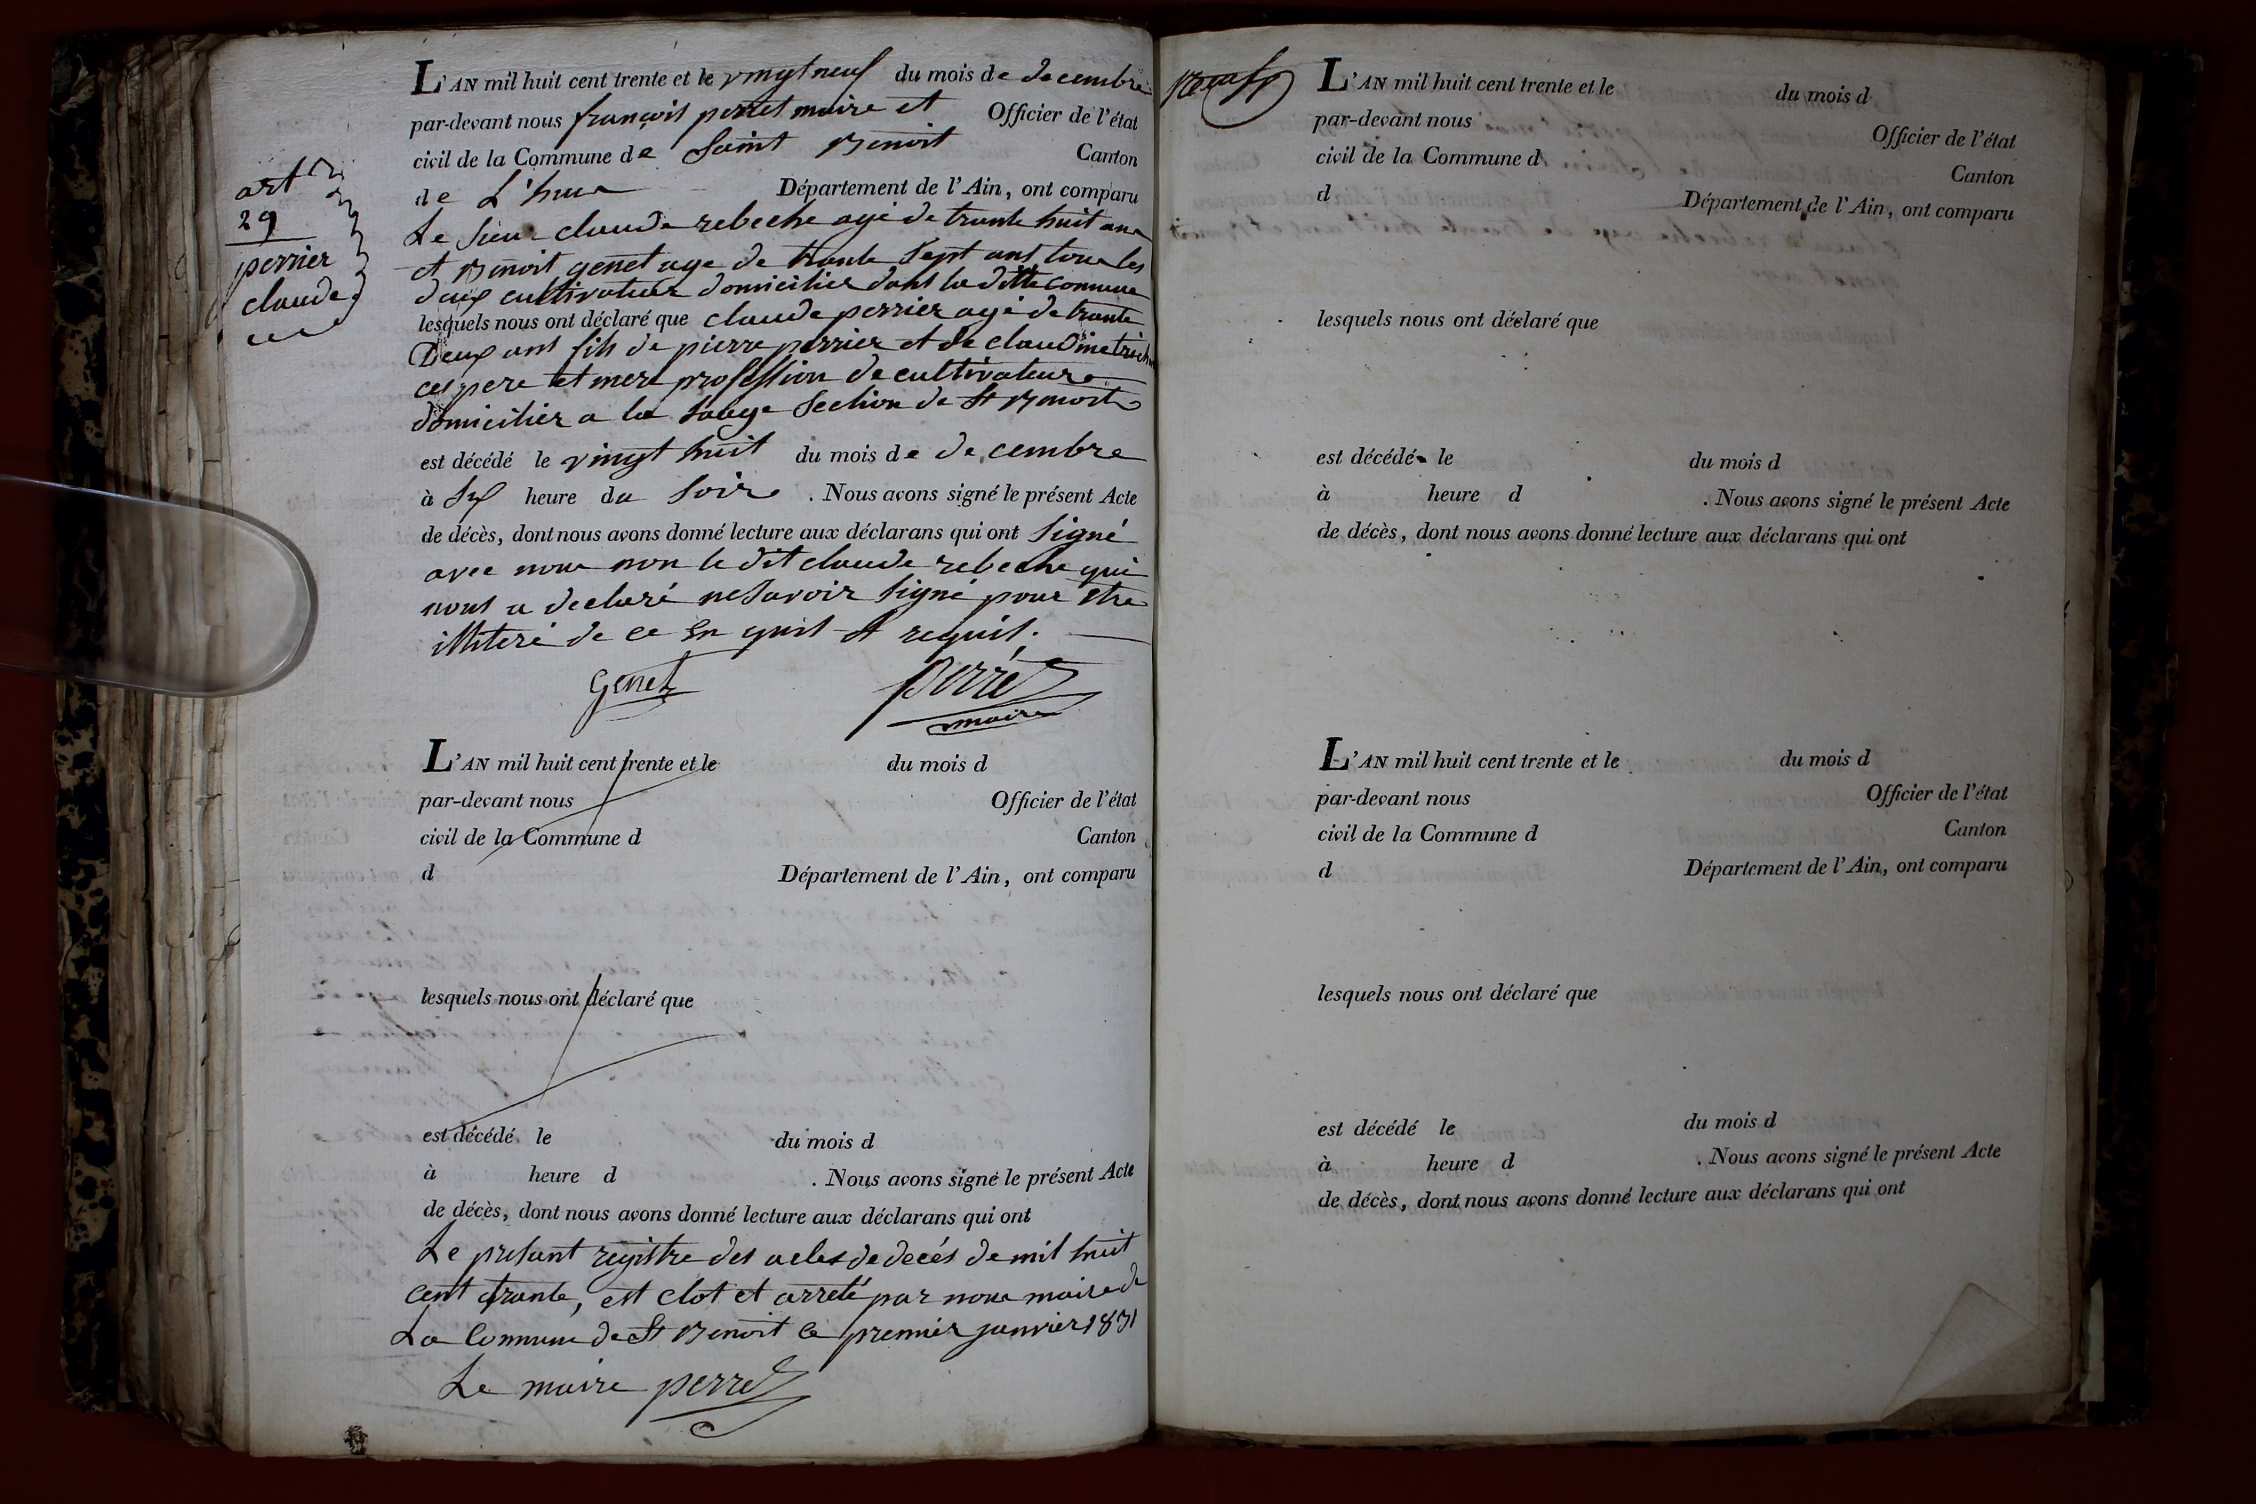 art
29
perrier
claude
L'AN mil huit cent trente et le vingt neuf du mois de decembre
par-devant nous françois perret maire et Officier de l'état
civil de la Commune de Saint Benoit Canton
de L'huis Département de l'Ain, ont comparu
Le Sieur claude rebeche agé de trante huit ans
et Benoit genet age de trante Sept ans tous les
deux cultivateur domicilier dans la ditte Commune
lesquels nous ont déclaré que claude perrier agé de trante
Deux ans fils de pierre perrier et de claudine
ces pere et mere profession de cultivateurs
domicilier a la Sauge Section de St Benoit
est décédé le vingt huit du mois de decembre
à Six heure du Soir . Nous avons signé le présent Acte
de décès, dont nous avons donné lecture aux déclarans qui ont Signé
avec nous non le dit claude rebeche qui
nous a declaré ne Savoir Signé pour être
illiteré de ce En quis et requis.
Genet perret
maire
L'AN mil huit cent trente et le du mois d
par-devant nous Officier de l'état
civil de la Commune d Canton
d Département de l'Ain, ont comparu
lesquels nous ont déclaré que
est décédé le du mois d
à heure d . Nous avons signé le présent Acte
de décès, dont nous avons donné lecture aux déclarans qui ont
Le présant registre des actes de decés de mil huit
cent trante, est clot et arreté par nous maire de
La Commune de St Benoit ce premier janvier 1831
Le maire perret
L'AN mil huit cent trente et le du mois d
par-devant nous Officier de l'état
civil de la Commune d Canton
d Département de l'Ain, ont comparu
lesquels nous ont déclaré que
est décédé le du mois d
à heure d . Nous avons signé le présent Acte
de décès, dont nous avons donné lecture aux déclarans qui ont
L'AN mil huit cent trente et le du mois d
par-devant nous Officier de l'état
civil de la Commune d Canton
d Département de l'Ain, ont comparu
lesquels nous ont déclaré que
est décédé le du mois d
à heure d . Nous avons signé le présent Acte
de décès, dont nous avons donné lecture aux déclarans qui ont